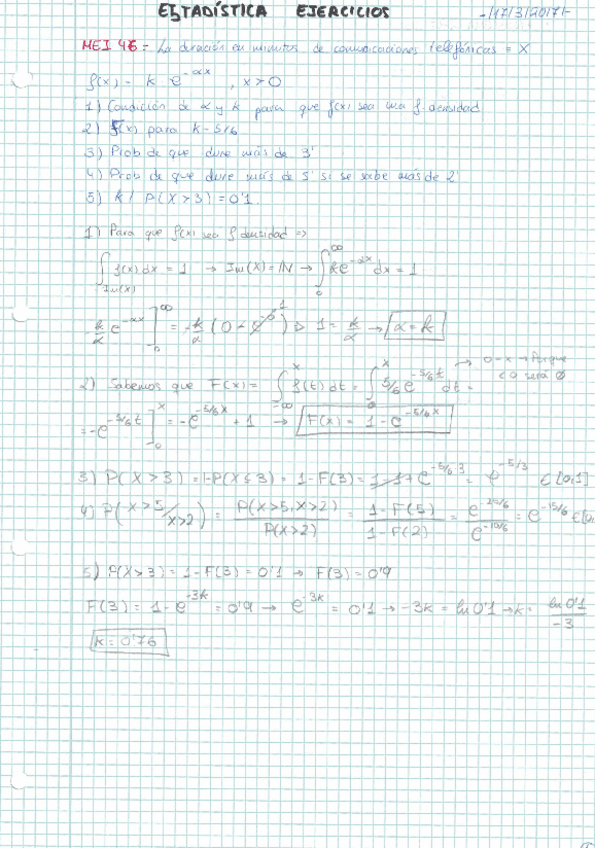 ESTADÍSTICA EJERCICIOS -/17/3/2017/-
MEI 46 = La duración en minutos de comunicaciones telefónicas = X
f(x) = k e^{-αx} , x>0
1) Condición de α y k para que f(x) sea una f. densidad
2) F(x) para k=5/6
3) Prob de que dure más de 3'
4) Prob de que dure más de 5' si se sabe más de 2'
5) k / P(X>3) = 0'1
1) Para que f(x) sea f densidad =>
∫_{Im(X)} f(x) dx = 1 → Im(X) = ℝ → ∫_0^∞ k e^{-αx} dx = 1
-k/α e^{-αx} ]_0^∞ = -k/α (0 - e^{-0}) 1 => 1 = k/α → α = k
2) Sabemos que F(x) = ∫_{-∞}^x f(t) dt = ∫_0^x 5/6 e^{-5/6 t} dt = → 0-x → Porque <0 será ∅
= -e^{-5/6 t} ]_0^x = -e^{-5/6 x} + 1 → F(x) = 1 - e^{-5/6 x}
3) P(X>3) = 1-P(X≤3) = 1-F(3) = 1-1+e^{-5/6·3} = e^{-5/3} ∈[0,1]
4) P(X>5/X>2) = P(X>5, X>2)/P(X>2) = 1-F(5)/1-F(2) = e^{-25/6}/e^{-10/6} = e^{-15/6} ∈[0,
5) P(X>3) = 1-F(3) = 0'1 → F(3) = 0'9
F(3) = 1-e^{-3k} = 0'9 → e^{-3k} = 0'1 → -3k = ln 0'1 → k = ln 0'1/-3
k = 0'76